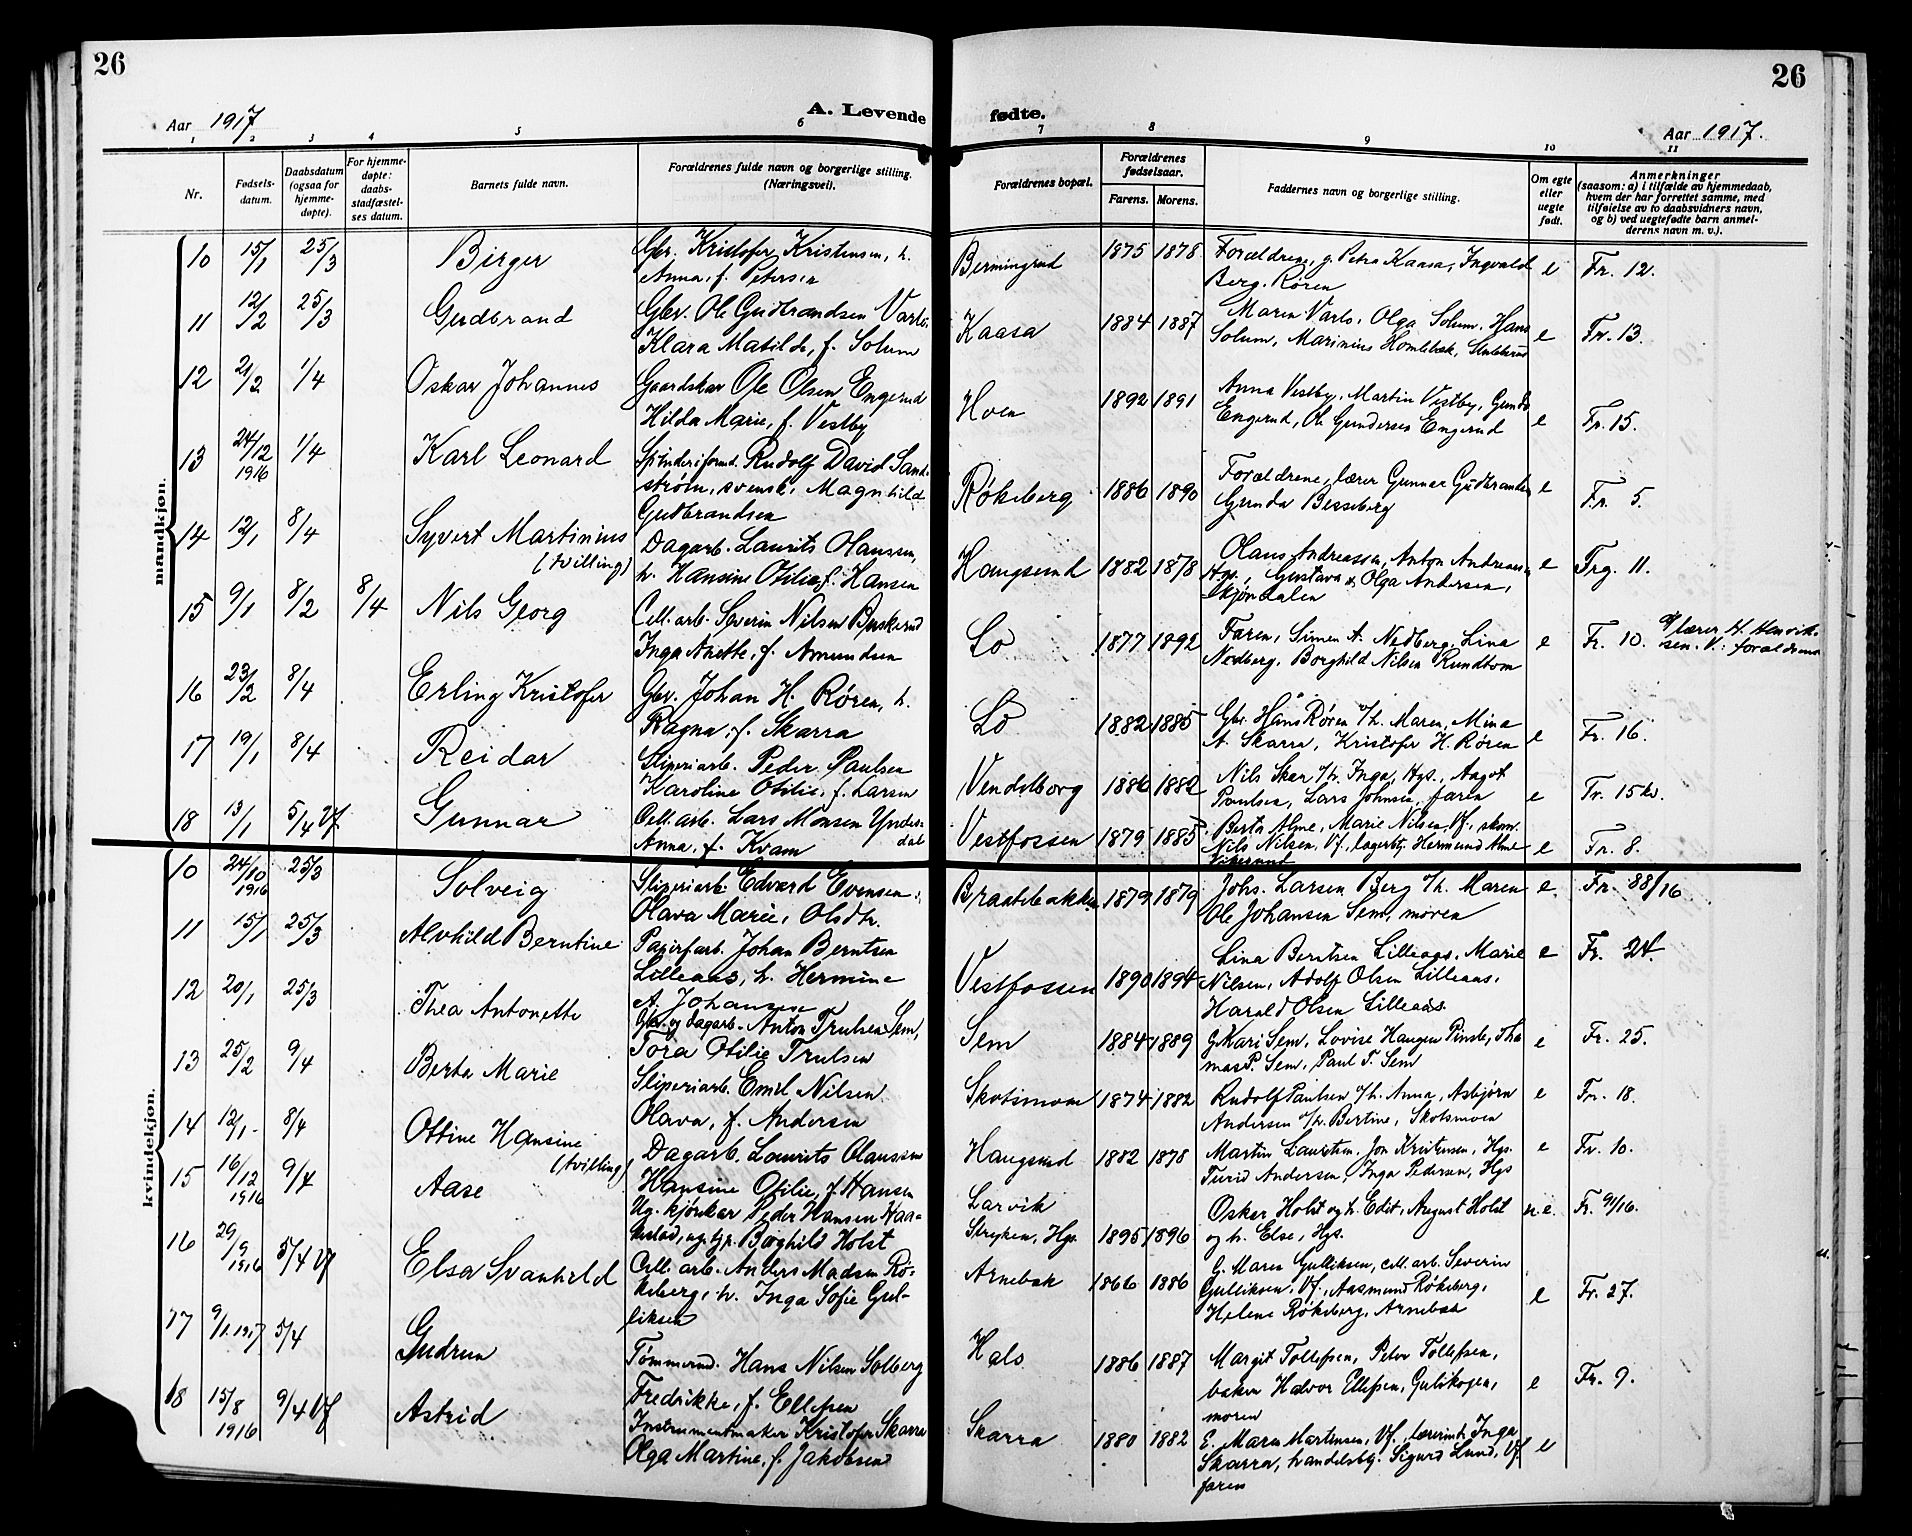 26
Aar 1917
A. Levende
1 2 3 4 5 6
Nr.
Fødsels-
datum.
Daabsdatum
(ogsaa for
hjemme-
døpte).
For hjemme-
døpte:
daabs-
stadfæstel-
ses datum.
Barnets fulde navn.
Forældrenes fulde navn og borgerlige stilling.
(Næringsvei).
mandkjøn.
10 15/1 25/3 Birger
Gbr. Kristofer Kristensen, h.
Anna, f. Petersen
11 12/2 25/3 Gudbrand
Gbr. Ole Gudbrandsen Varlo,
Klara Matilde, f. Solum
12 21/2 1/4 Oskar Johannes
Gaardskar Ole Olsen Engerud
Hilda Marie, f. Vestby
13 24/12 1916 1/4 Karl Leonard
Spinderiformd. Rudolf David Sand-
strøm, svensk, Magnhild
Gudbrandsen
14 12/1 8/4 Syvert Martinius
(tvilling)
Dagarb. Laurits Olaussen,
h. Hansine Otilie, f. Hansen
15 9/1 8/2 8/4 Nils Georg
Cell. arb. Severin Nilsen Buskerud
Inga Anette, f. Amundsen
16 23/2 8/4 Erling Kristofer
Gbr. Johan H. Røren, h.
Ragna, f. Skarra
17 19/1 8/4 Reidar
Sliperiarb. Peder Paulsen
Karoline Otilie, f. Larsen
18 13/1 5/4 Vf Gunnar
Cell. arb. Lars Monsen Yndes-
dal
Anna, f. Kvam
kvindekjøn.
10 24/10 1916 25/3 Solveig
Sliperiarb. Edvard Evensen,
Olava Marie, Olsdtr.
11 15/1 25/3 Alvhild Berntine
Papirfarb. Johan Berntsen
Lilleaas, h. Hermine
A. Johansen
12 20/1 25/3 Thea Antonette
Gbr. og dagarb. Anton Trulsen Sem,
Tora Otilie Trulsen
13 25/2 9/4 Berta Marie
Sliperiarb. Emil Nilsen
Olava, f. Andersen
14 12/1 8/4 Ottine Hansine
(tvilling)
Dagarb. Laurits Olaussen
Hansine Otilie, f. Hansen
15 16/12 1916 9/4 Aase
Ug. kjørekar Peder Hansen Haa-
kestad, ug. tj.p. Borghild Holst
16 29/9 1916 5/4 Vf Elsa Svanhild
Cell. arb. Anders Madsen Rø-
keberg, h. Inga Sofie Gul-
liksen
17 9/1 1917 5/4 Gudrun
Tømmermd. Hans Nilsen Solberg
Fredrikke, f. Ellefsen
18 15/8 1916 9/4 Vf Astrid
Instrumentmaker Kristofer Skarra
Olga Martine, f. Jakobsen
26
fødte.
Aar 1917.
7 8 9 10 11
Forældrenes bopæl.
Forældrenes
fødselsaar.
Farens. Morens.
Faddernes navn og borgerlige stilling.
Om egte
eller
uegte
født.
Anmerkninger
(saasom: a) i tilfælde av hjemmedaab,
hvem der har forrettet samme, med
tilføielse av to daabsvidners navn,
og b) ved uegtefødte barn anmel-
derens navn m. v.).
Bermingrud 1875 1878 Forældrene, g. Petra Kaasa, Ingvald
Berg. Røren e Fr. 12.
Kaasa 1884 1887 Maren Varlo, Olga Solum, Hans
Solum, Marinius Homlebæk, e Fr. 13.
Hoen 1892 1891 Anna Vestby, Martin Vestby, Gunda
Engerud, Ole Gundersen Engerud e Fr. 15.
Røkeberg 1886 1890 Forældrene, lærer Gunnar Gudbrandsen
Gunda Besseberg e Fr. 5.
Haugsund 1882 1878 Olaus Andreassen, Anton Andreassen
Hgs., Gustava & Olga Andersen,
Skjøndalen e Frg. 11.
Lo 1877 1892 Faren, Simen A. Nedberg, Lina
Nedberg, Borghild Nilsen Rundtom e Fr. 10. a/ lærer H. Henrik-
sen. V.: forældrene
Lo 1882 1885 Gbr. Hans Røren o/h. Maren, Mina
A. Skarra, Kristofer H. Røren e Fr. 16.
Vendelborg 1886 1882 Nils Skar o/h. Inga, Hgs., Aagot
Paulsen, Lars Johnsen, faren e Fr. 15 kv.
Vestfossen 1879 1885 Berta Alme, Marie Nilsen, Vf., skom.
Nils Nilsen, Vf., lagerbtj. Hermund Alme
Vikersund e Fr. 8.
Braatebakken 1879 1879 Johs. Larsen Berg o/h. Maren
Ole Johansen Sem, moren e Fr. 88/16
Vestfossen 1890 1894 Lina Berntsen Lilleaas, Marie
Nilsen, Adolf Olsen Lilleaas,
Harald Olsen Lilleaas. e Fr. 24
Sem 1884 1889 G. Kari Sem, Lovise Haugen Pinsle, Tho-
mas P. Sem, Paul T. Sem e Fr. 25.
Skotsmoen 1874 1882 Rudolf Paulsen o/h. Anna, Asbjørn
Andersen o/h. Bertine, Skotsmoen e Fr. 18.
Haugsund 1882 1878 Martin Lauritsen, Jon Kristensen, Hgs.
Turid Andersen, Inga Pedersen, Hgs e Fr. 10.
Larvik
Stryken, Hgs 1895 1896 Oskar Holst og h. Edit, August Holst
og h. Else, Hgs. u.e. Fr. 91/16.
Arnebæk 1866 1886 G. Maren Gulliksen, cell. arb. Severin
Gulliksen, Vf., Aasmund Røkeberg,
Helene Røkeberg, Arnebæk e Fr. 27.
Hals 1886 1887 Margit Tollefsen, Peter Tollefsen,
baker Halvor Ellefsen, Gulskogen,
moren e Fr. 9.
Skarra 1880 1882 E. Maren Martinsen, Vf., lærerinde Inga
Skarra, handelsbtj. Sigurd Lund, Vf.
faren e